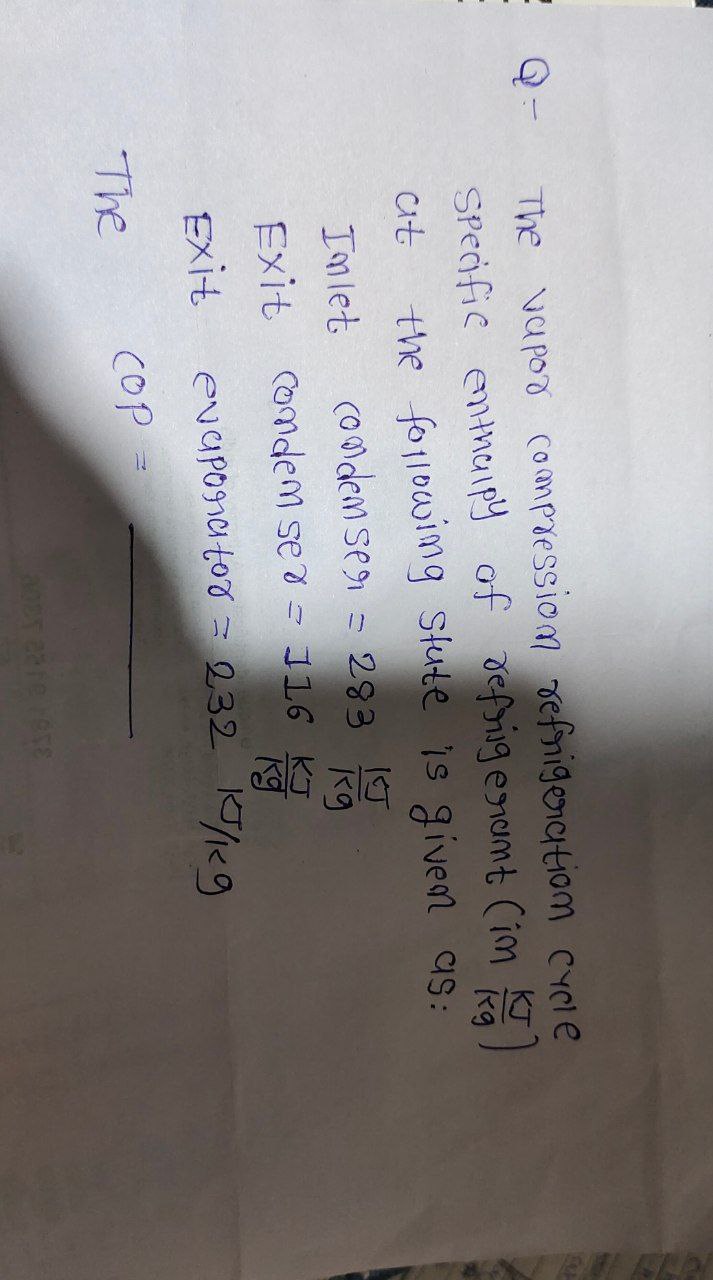 Q- The vapor compression refrigeration cycle
specific enthalpy of refrigerant (in KJ/kg)
at the following state is given as:
Inlet condenser = 283 KJ/kg
Exit condenser = 116 KJ/kg
Exit evaporator = 232 KJ/kg
The COP = ______